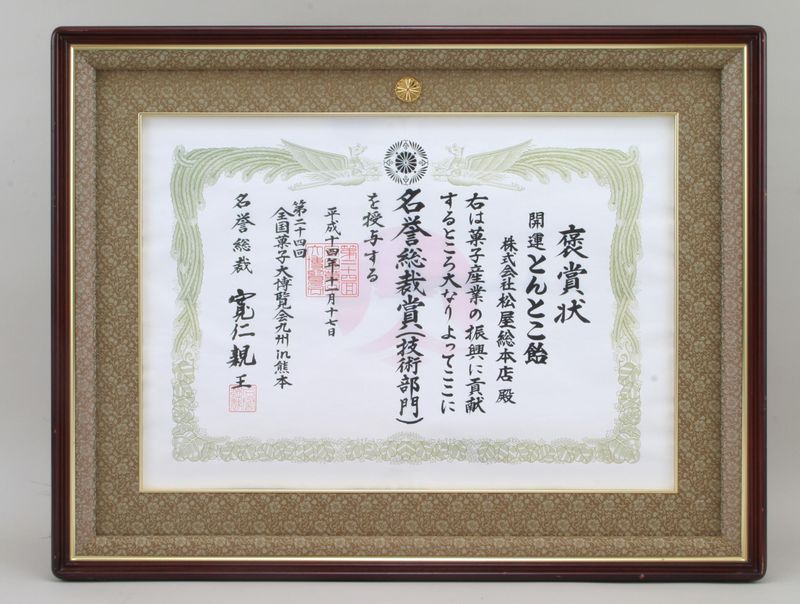 褒賞状
開運とんとこ飴
株式会社松屋総本店 殿
右は菓子産業の振興に貢献
するところ大なりよってここに
名誉総裁賞(技術部門)
を授与する
平成十四年十一月十七日
第二十四回
全国菓子大博覧会九州in熊本
名誉総裁 寛仁親王